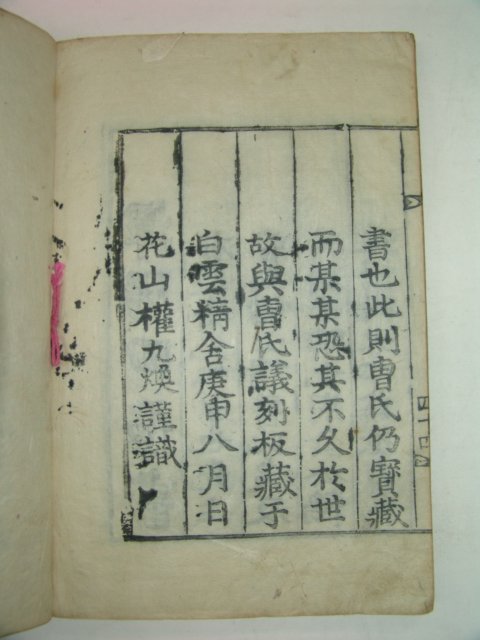 書也此則曺氏仍寶藏
而某某恐其不久於世
故與曺氏議刻板藏于
白雲精舍庚申八月日
花山權九煥謹識